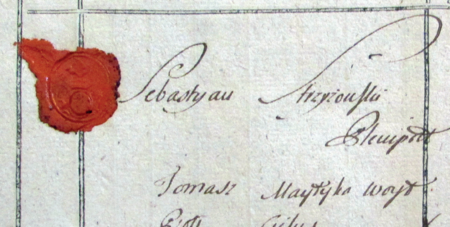 Sebastyan Strzyzouski
Plenipot
Tomasz Maytyka Woyt
Piotr